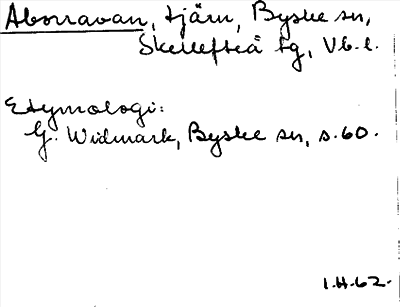 Aborravan, tjärn, Byske sn,
Skellefteå tg, Vb. l.
Etymologi:
G. Widmark, Byske sn, s. 60.
1.H.62.